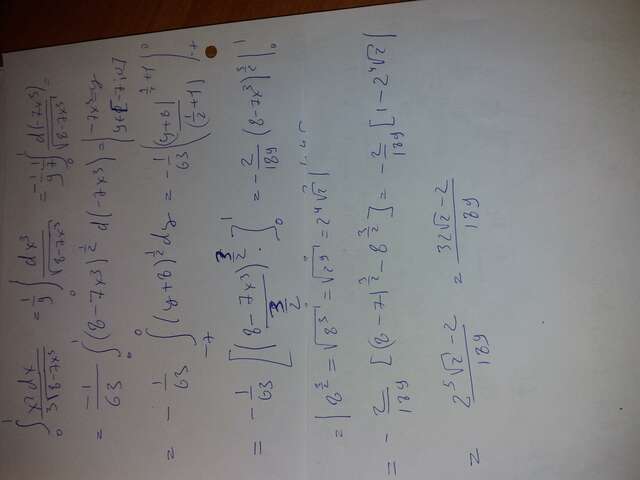 ∫₀¹ x²dx / 3√8-7x³ = 1/9 ∫ dx³ / √8-7x³ = -1/9 · 1/7 ∫₀¹ d(-7x³) / √8-7x³ =
= -1/63 ∫₀¹ (8-7x³)^(1/2) d(-7x³) =
= -1/63 ∫₋₇⁰ (y+8)^(1/2) dy = -1/63 ( (y+8)^(1/2+1) / (1/2+1) ) |₋₇⁰
= -1/63 [ (8-7x³)^(3/2) / (3/2) · ]₀¹ = -2/189 (8-7x³)^(3/2) |₀¹
= | 8^(3/2) = √8³ = √2⁹ = 2⁴√2 |
= -2/189 [ (8-7)^(3/2) - 8^(3/2) ] = -2/189 [ 1-2⁴√2 ]
= 2⁵√2-2 / 189 = 32√2-2 / 189